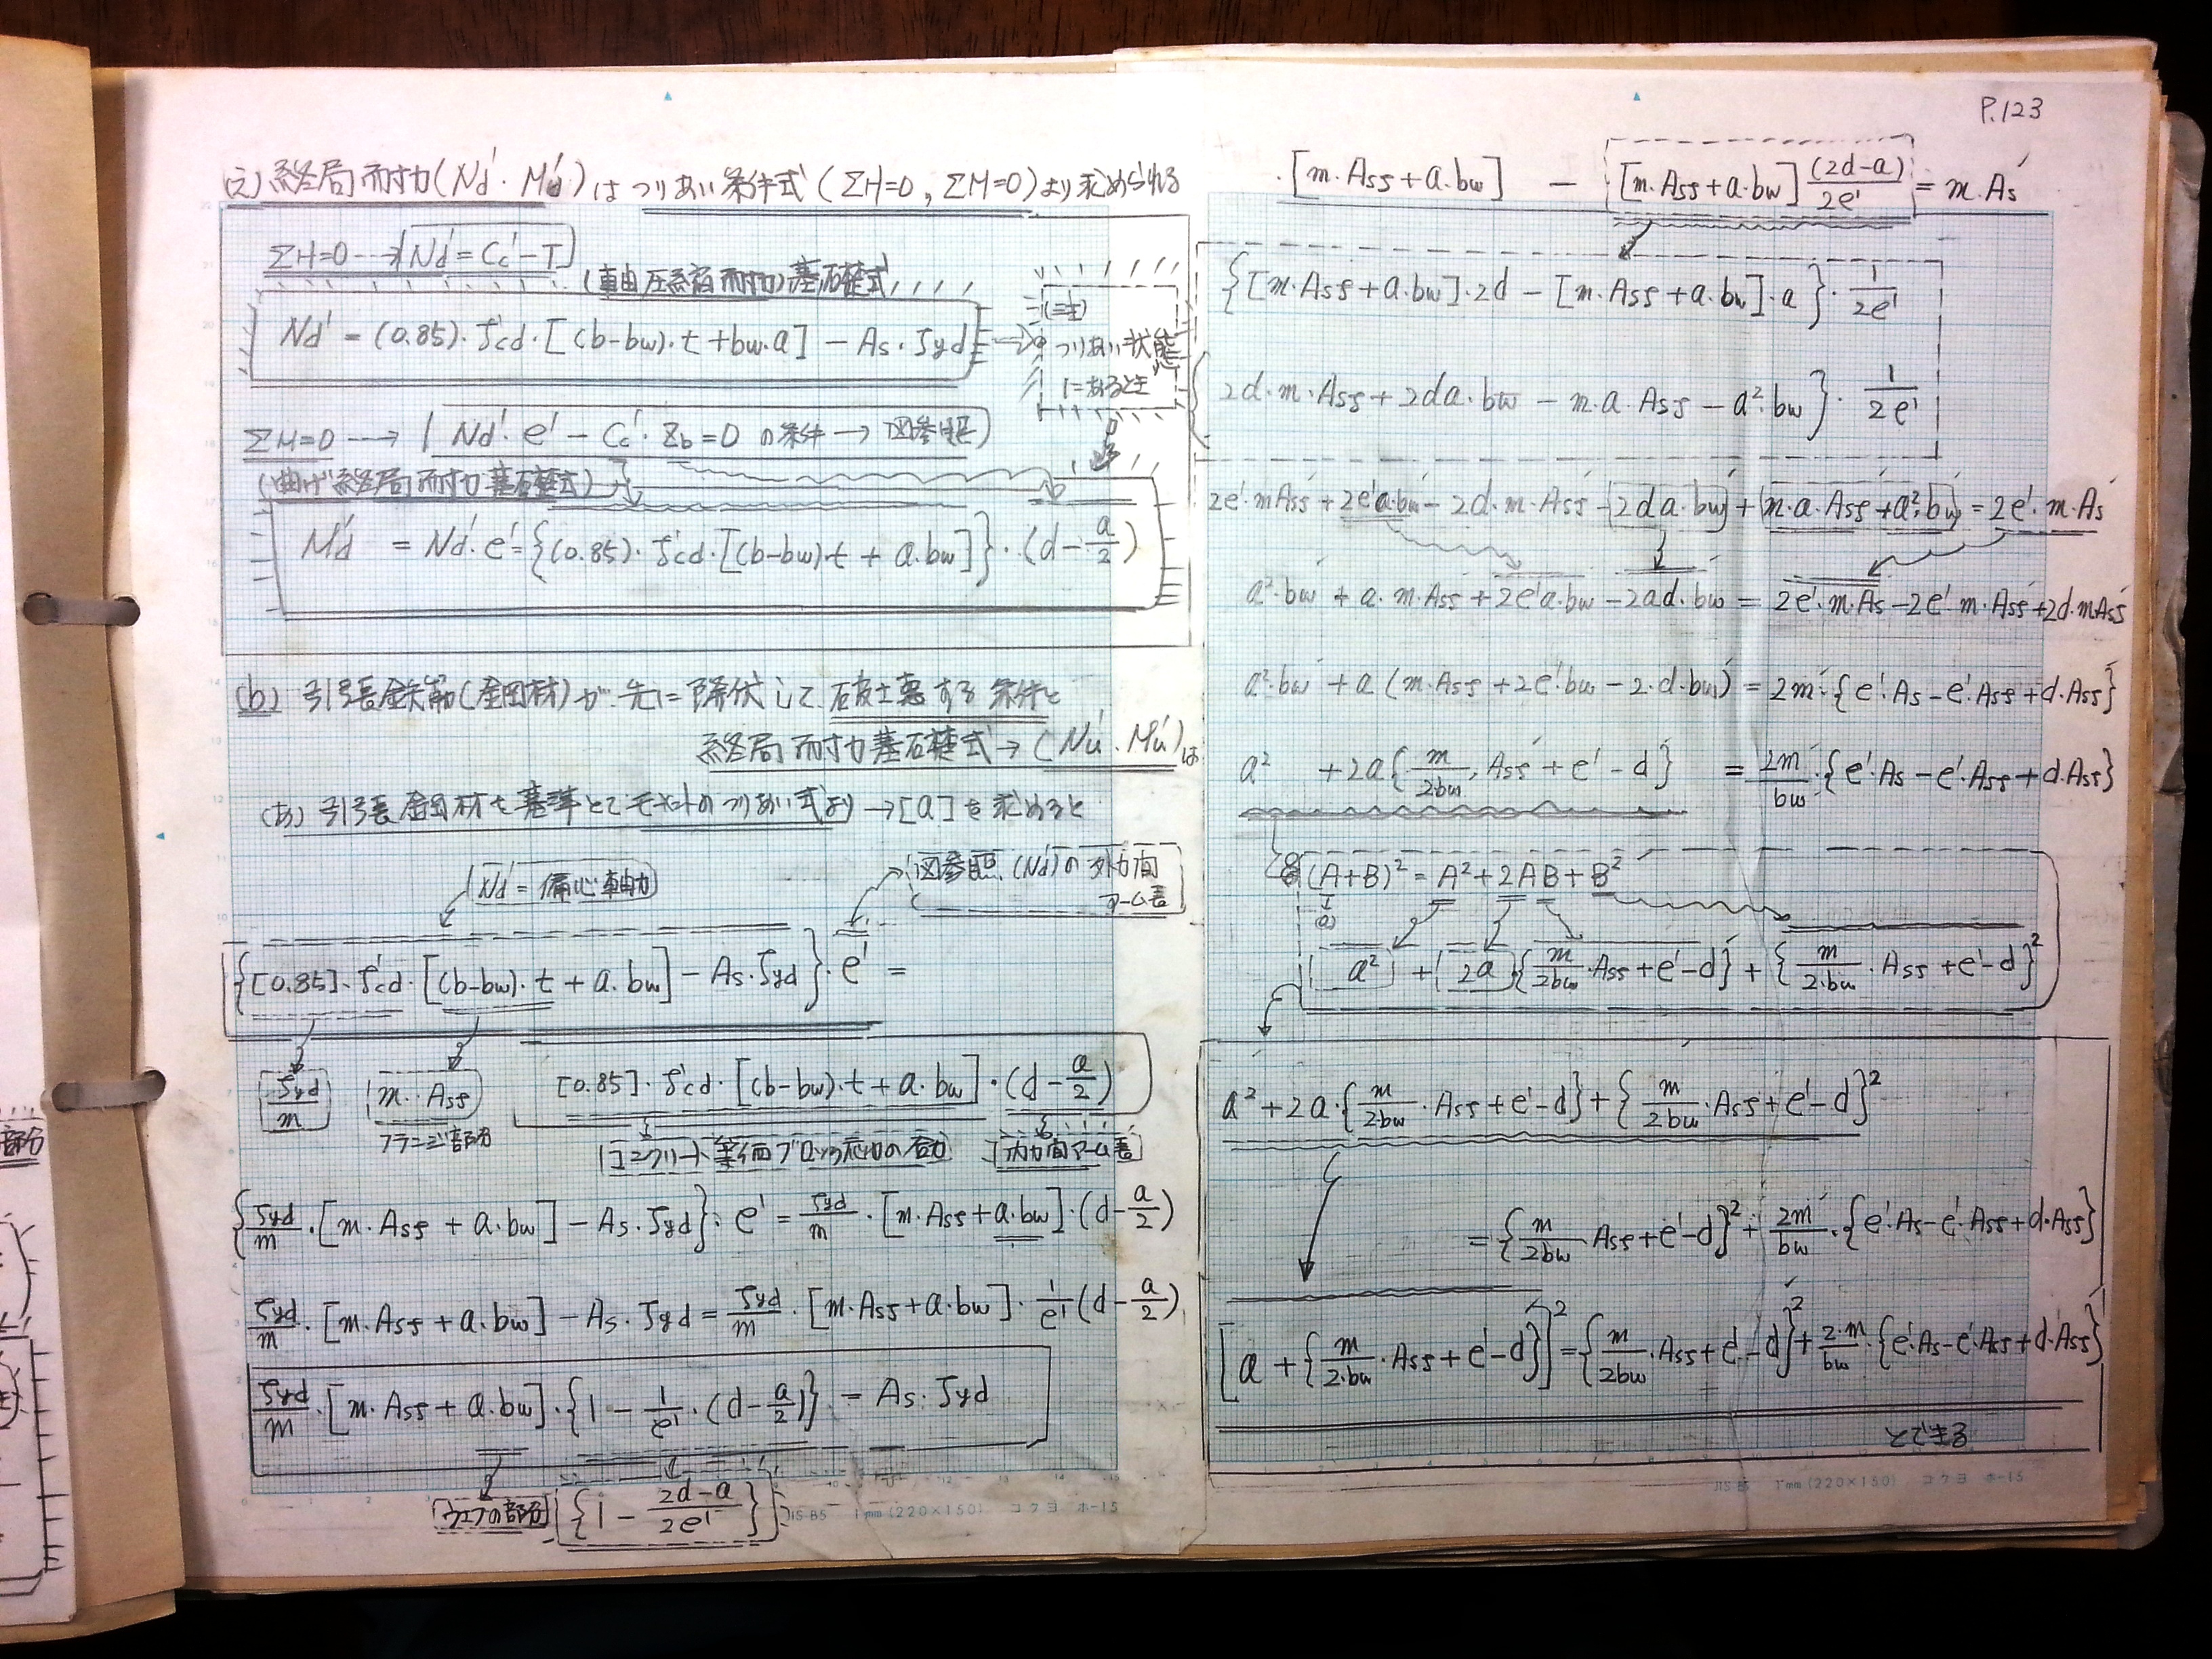 P.123
(え) 終局耐力(Nd'・Md')はつりあい条件式(ΣH=0, ΣM=0)より求められる
ΣH=0 → Nd' = Cc' - T
(軸圧縮耐力)基礎式
Nd' = (0.85)・f'cd・[(b-bw)・t + bw・a] - As・fyd
つりあい状態
にあるとき
ΣM=0 → Nd'・e' - Cc'・Zb = 0 の条件 → 図参照
(曲げ終局耐力基礎式)
Md' = Nd'・e' = {(0.85)・f'cd・[(b-bw)t + a.bw]}・(d - a/2)
(b) 引張鉄筋(鋼材)が先に降伏して破壊する条件と
終局耐力基礎式 → (Nu'・Mu')は
(あ) 引張鋼材を基準としてモーメントのつりあい式より → [a]を求めると
Nd' = 偏心軸力
図参照、(Nd')の外力間
アーム長
{[0.85]・f'cd・[(b-bw)・t + a.bw] - As・fyd}・e' =
fyd/m
m・Asf
フランジ部分
[0.85]・f'cd・[(b-bw)・t + a.bw]・(d - a/2)
コンクリート等価ブロック応力の合力
内力間アーム長
{fyd/m・[m.Asf + a.bw] - As・fyd}・e' = fyd/m・[m.Asf + a.bw]・(d - a/2)
fyd/m・[m.Asf + a.bw] - As・fyd = fyd/m・[m.Asf + a.bw]・1/e'(d - a/2)
fyd/m・[m.Asf + a.bw]・{1 - 1/e'・(d - a/2)} = As・fyd
ウェブの部分
{1 - (2d-a)/2e'}
JIS-B5 1mm (220×150) コクヨ ホ-15
・[m.Asf + a.bw] - [m.Asf + a.bw](2d-a)/2e' = m.As
{[m.Asf + a.bw]・2d - [m.Asf + a.bw]・a}・1/2e'
2d・m・Asf + 2da・bw - m.a.Asf - a²・bw}・1/2e'
2e'・mAsf + 2e'a・bw - 2d.m.Asf - 2da.bw + m.a.Asf + a²・bw = 2e'・m.As
a²・bw + a.m.Asf + 2e'a.bw - 2ad.bw = 2e'・m.As - 2e'm.Asf + 2d.mAsf
a²・bw + a(m.Asf + 2e'bw - 2.d.bw) = 2m・{e'・As - e'・Asf + d.Asf}
a² + 2a{m/2bw・Asf + e' - d} = 2m/bw・{e'・As - e'・Asf + d.Asf}
(A+B)² = A² + 2AB + B²
(a)
a² + 2a{m/2bw・Asf + e' - d} + {m/2.bw・Asf + e' - d}²
a² + 2a・{m/2bw・Asf + e' - d} + {m/2bw・Asf + e' - d}²
= {m/2bw Asf + e' - d}² + 2m/bw・{e'・As - e'・Asf + d・Asf}
[a + {m/2.bw・Asf + e' - d}]² = {m/2bw・Asf + e' - d}² + 2.m/bw・{e'As - e'Asf + d・Asf}
とできる
JIS-B5 1mm (220×150) コクヨ ホ-15
部分